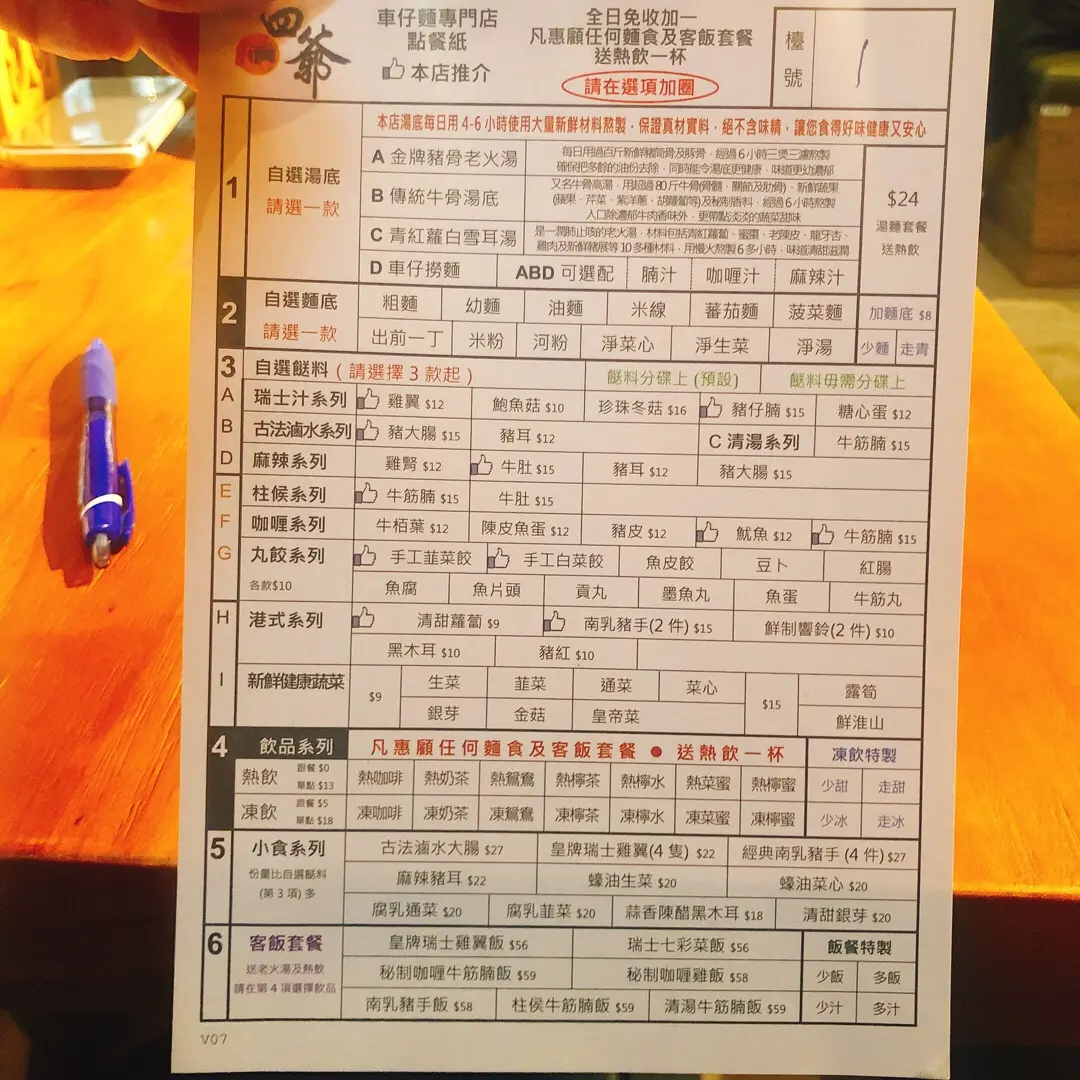 四爺
車仔麵專門店
點餐紙
本店推介
全日免收加一
凡惠顧任何麵食及客飯套餐
送熱飲一杯
請在選項加圈
檯號
1
本店湯底每日用 4-6 小時使用大量新鮮材料熬製，保證真材實料，絕不含味精，讓您食得好味健康又安心
1 自選湯底
請選一款
A 金牌豬骨老火湯
每日用過百斤新鮮豬筒骨及豚骨，經過 6 小時三煲三濾熬製
確保把多餘的油份去除，同時能令湯底更健康，味道更幼濃郁
B 傳統牛骨湯底
又名牛骨高湯，用超過 80 斤牛骨(骨髓、關節及肋骨)、新鮮蔬果
(蘋果、芹菜、紫洋蔥、胡蘿蔔等)及秘制香料，經過 6 小時熬製
入口除濃郁牛肉香味外，更帶點淡淡的蔬菜甜味
C 青紅蘿白雪耳湯
是一潤肺止咳的老火湯，材料包括青紅蘿蔔、蜜棗、老陳皮、龍牙杏、
雞肉及新鮮豬展等 10 多種材料，用慢火熬製 6 多小時，味道清甜滋潤
D 車仔撈麵 ABD 可選配 腩汁 咖喱汁 麻辣汁
$24
湯麵套餐
送熱飲
2 自選麵底
請選一款
粗麵 幼麵 油麵 米線 蕃茄麵 菠菜麵 加麵底 $8
出前一丁 米粉 河粉 淨菜心 淨生菜 淨湯 少麵 走青
3 自選餸料 ( 請選擇 3 款起 ) 餸料分碟上 (預設) 餸料毋需分碟上
A 瑞士汁系列 雞翼 $12 鮑魚菇 $10 珍珠冬菇 $16 豬仔腩 $15 糖心蛋 $12
B 古法滷水系列 豬大腸 $15 豬耳 $12 C 清湯系列 牛筋腩 $15
D 麻辣系列 雞腎 $12 牛肚 $15 豬耳 $12 豬大腸 $15
E 柱候系列 牛筋腩 $15 牛肚 $15
F 咖喱系列 牛栢葉 $12 陳皮魚蛋 $12 豬皮 $12 魷魚 $12 牛筋腩 $15
G 丸餃系列 手工韮菜餃 手工白菜餃 魚皮餃 豆卜 紅腸
各款$10 魚腐 魚片頭 貢丸 墨魚丸 魚蛋 牛筋丸
H 港式系列 清甜蘿蔔 $9 南乳豬手(2 件) $15 鮮制響鈴(2 件) $10
黑木耳 $10 豬紅 $10
I 新鮮健康蔬菜 $9 生菜 韮菜 通菜 菜心 $15 露筍
銀芽 金菇 皇帝菜 鮮淮山
4 飲品系列 凡惠顧任何麵食及客飯套餐 ● 送熱飲一杯 凍飲特製
熱飲 跟餐 $0 單點 $13 熱咖啡 熱奶茶 熱鴛鴦 熱檸茶 熱檸水 熱菜蜜 熱檸蜜 少甜 走甜
凍飲 跟餐 $5 單點 $18 凍咖啡 凍奶茶 凍鴛鴦 凍檸茶 凍檸水 凍菜蜜 凍檸蜜 少冰 走冰
5 小食系列
份量比自選餸料
(第 3 項) 多
古法滷水大腸 $27 皇牌瑞士雞翼(4 隻) $22 經典南乳豬手 (4 件) $27
麻辣豬耳 $22 蠔油生菜 $20 蠔油菜心 $20
腐乳通菜 $20 腐乳韮菜 $20 蒜香陳醋黑木耳 $18 清甜銀芽 $20
6 客飯套餐
送老火湯及熱飲
請在第 4 項選擇飲品
皇牌瑞士雞翼飯 $56 瑞士七彩菜飯 $56 飯餐特製
秘制咖喱牛筋腩飯 $59 秘制咖喱雞飯 $58 少飯 多飯
南乳豬手飯 $58 柱侯牛筋腩飯 $59 清湯牛筋腩飯 $59 少汁 多汁
V07